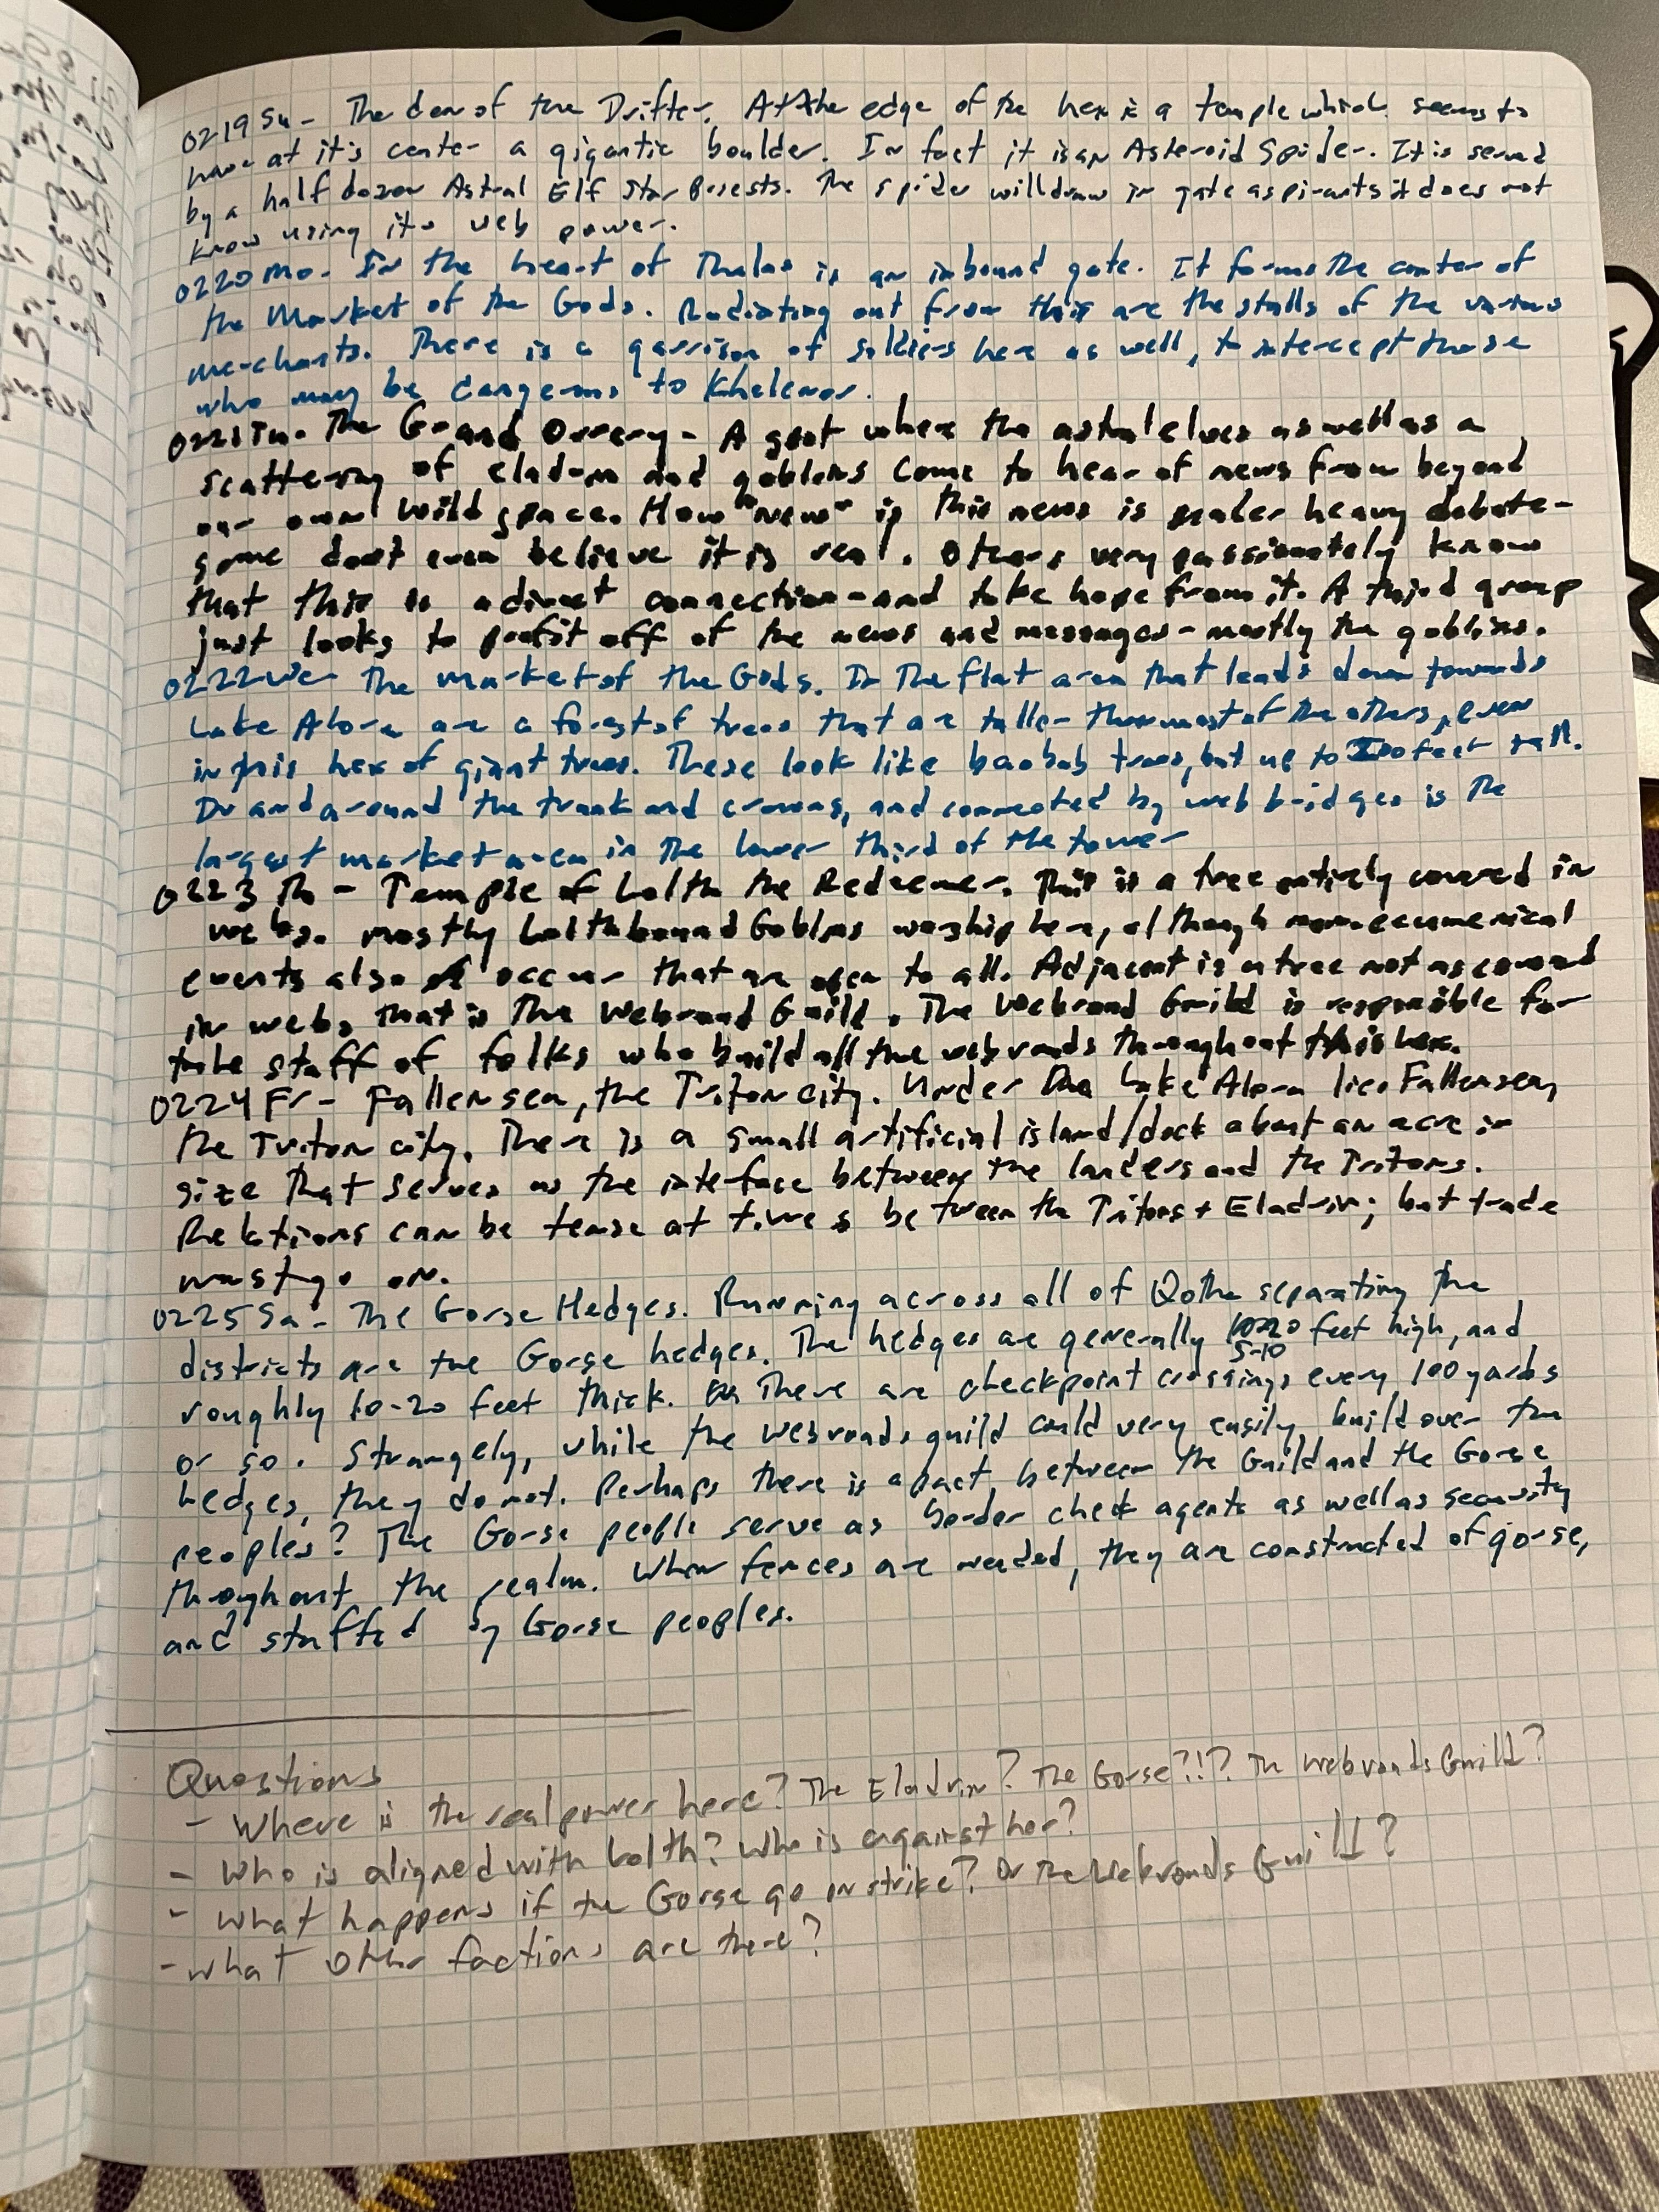 0219 Su - The den of the Drifter. At the edge of the hex is a temple which seems to
have at it's center a gigantic boulder. In fact it is an Asteroid Spider. It is served
by a half dozen Astral Elf Star Priests. The spider will draw in gate aspirants it does not
know using its web power.
0220 Mo - In the heart of Thalas is an inbound gate. It forms the center of
the Market of the Gods. Radiating out from this are the stalls of the various
merchants. There is a garrison of soldiers here as well, to intercept those
who may be dangerous to Khelenor.
0221 Tu - The Grand Orrery - A spot where the astral elves as well as a
scattering of eladrin and goblins come to hear of news from beyond
our own wild space. How "new" is this news is under heavy debate -
some don't even believe it is real. Others very passionately know
that this is a direct connection - and take hope from it. A third group
just looks to profit off of the news and messages - mostly the goblins.
0222 We - The Market of the Gods. In The flat area that leads down towards
Lake Alora are a forest of trees that are taller than most of the others, even
in this hex of giant trees. These look like baobab trees, but up to feet tall.
In and around the trunk and crowns, and connected by web bridges is the
largest market area in the lower third of the tower
0223 Th - Temple of Lolth the Redeemer. This is a tree entirely covered in
webs. Mostly Lolthbound Goblins worship here, although more ecumenical
events also occur that are open to all. Adjacent is a tree not as covered
in webs, that is The Webroad Guild. The Webroad Guild is responsible for
the staff of folks who build all the webroads throughout this hex.
0224 Fr - Fallensea, the Triton city. Under the Lake Alora lies Fallensea,
the Triton city. There is a small artificial island/dock about an acre in
size that serves as the interface between the landers and the Tritons.
Relations can be tense at times between the Tritons + Eladrin; but trade
must go on.
0225 Sa - The Gorse Hedges. Running across all of Qothe separating the
districts are the Gorse hedges. The hedges are generally 5-10 feet high, and
roughly 10-20 feet thick. There are checkpoint crossings every 100 yards
or so. Strangely, while the webroads guild could very easily build over the
hedges, they do not. Perhaps there is a pact between the Guild and the Gorse
peoples? The Gorse people serve as border check agents as well as security
throughout the realm. When fences are needed, they are constructed of gorse,
and staffed by Gorse peoples.
Questions
- Where is the real power here? The Eladrin? The Gorse?!? The Webroads Guild?
- Who is aligned with Lolth? Who is against her?
- What happens if the Gorse go on strike? Or The Webroads Guild?
- What other factions are there?